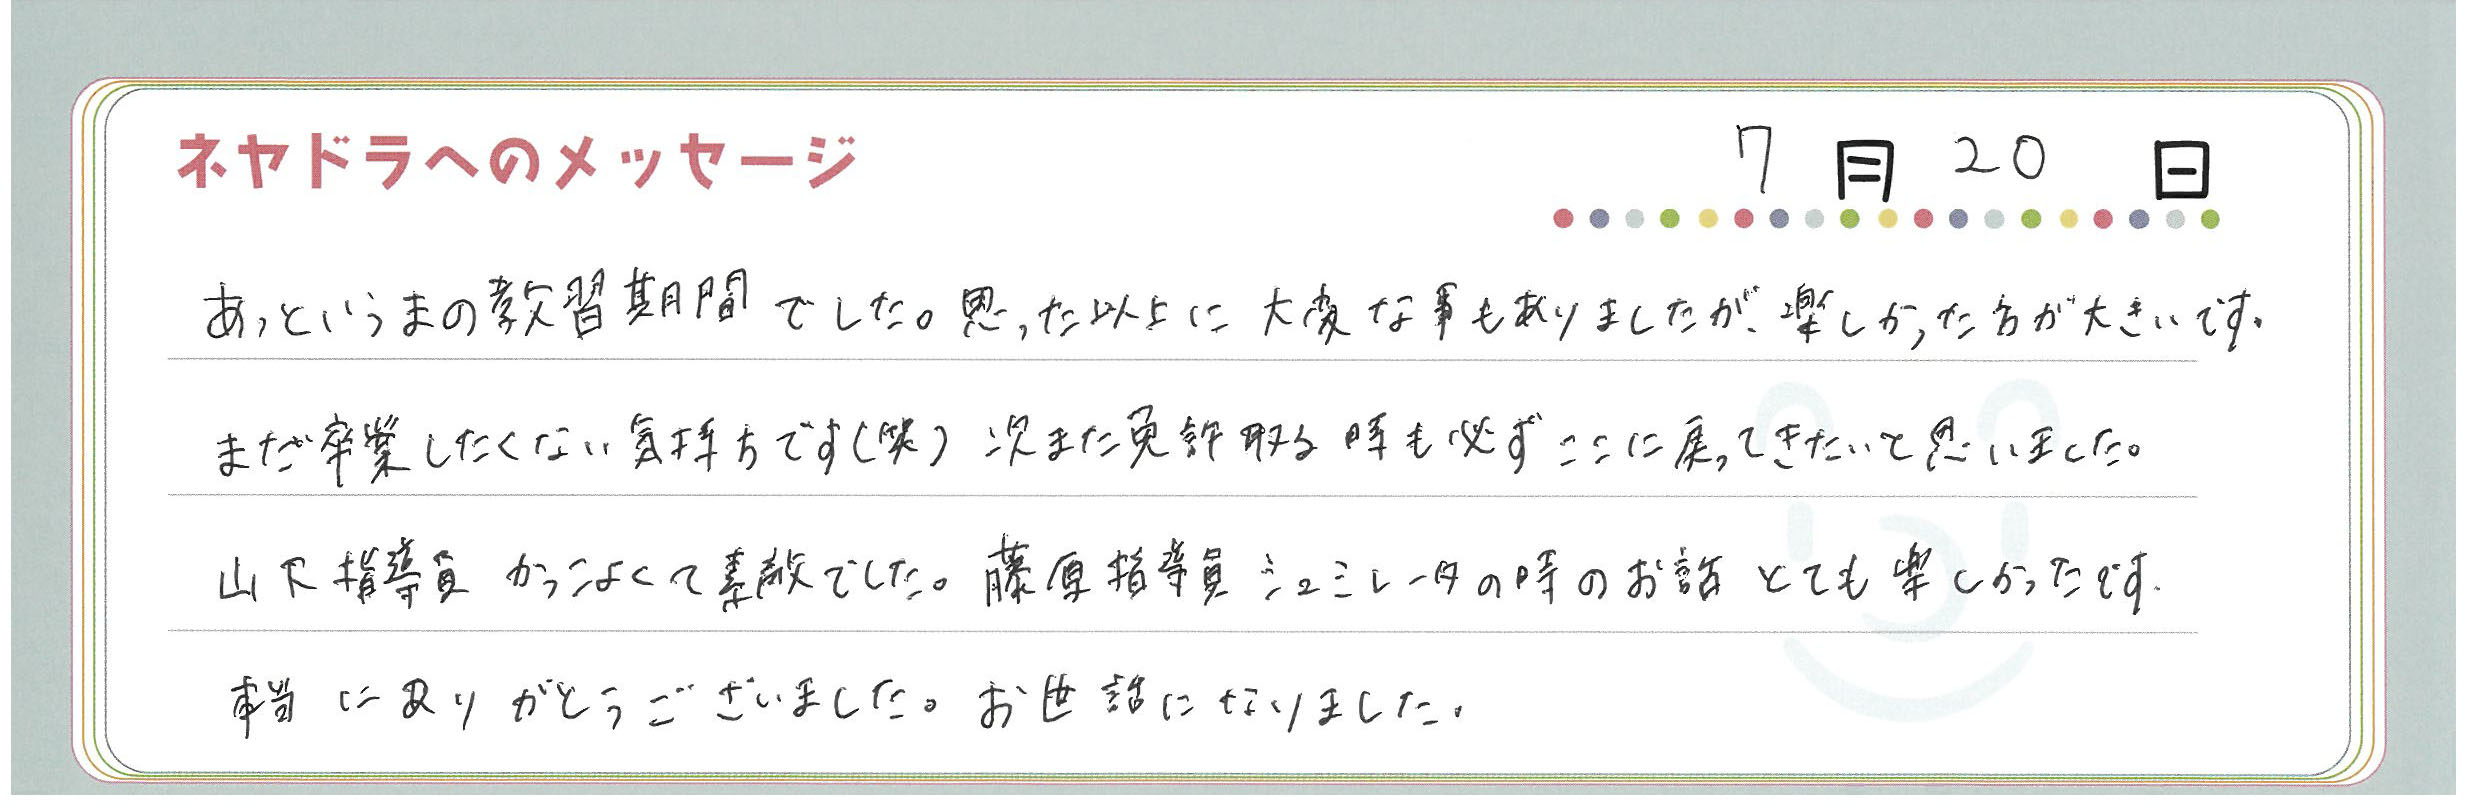 ネヤドラへのメッセージ
7月20日
あっというまの教習期間でした。思った以上に大変な事もありましたが、楽しかった方が大きいです。
まだ卒業したくない気持ちです(笑) 次また免許取る時も必ずここに戻ってきたいと思いました。
山下指導員 かっこよくて素敵でした。藤原指導員 シュミレータの時のお話 とても楽しかったです.
本当にありがとうございました。お世話になりました.